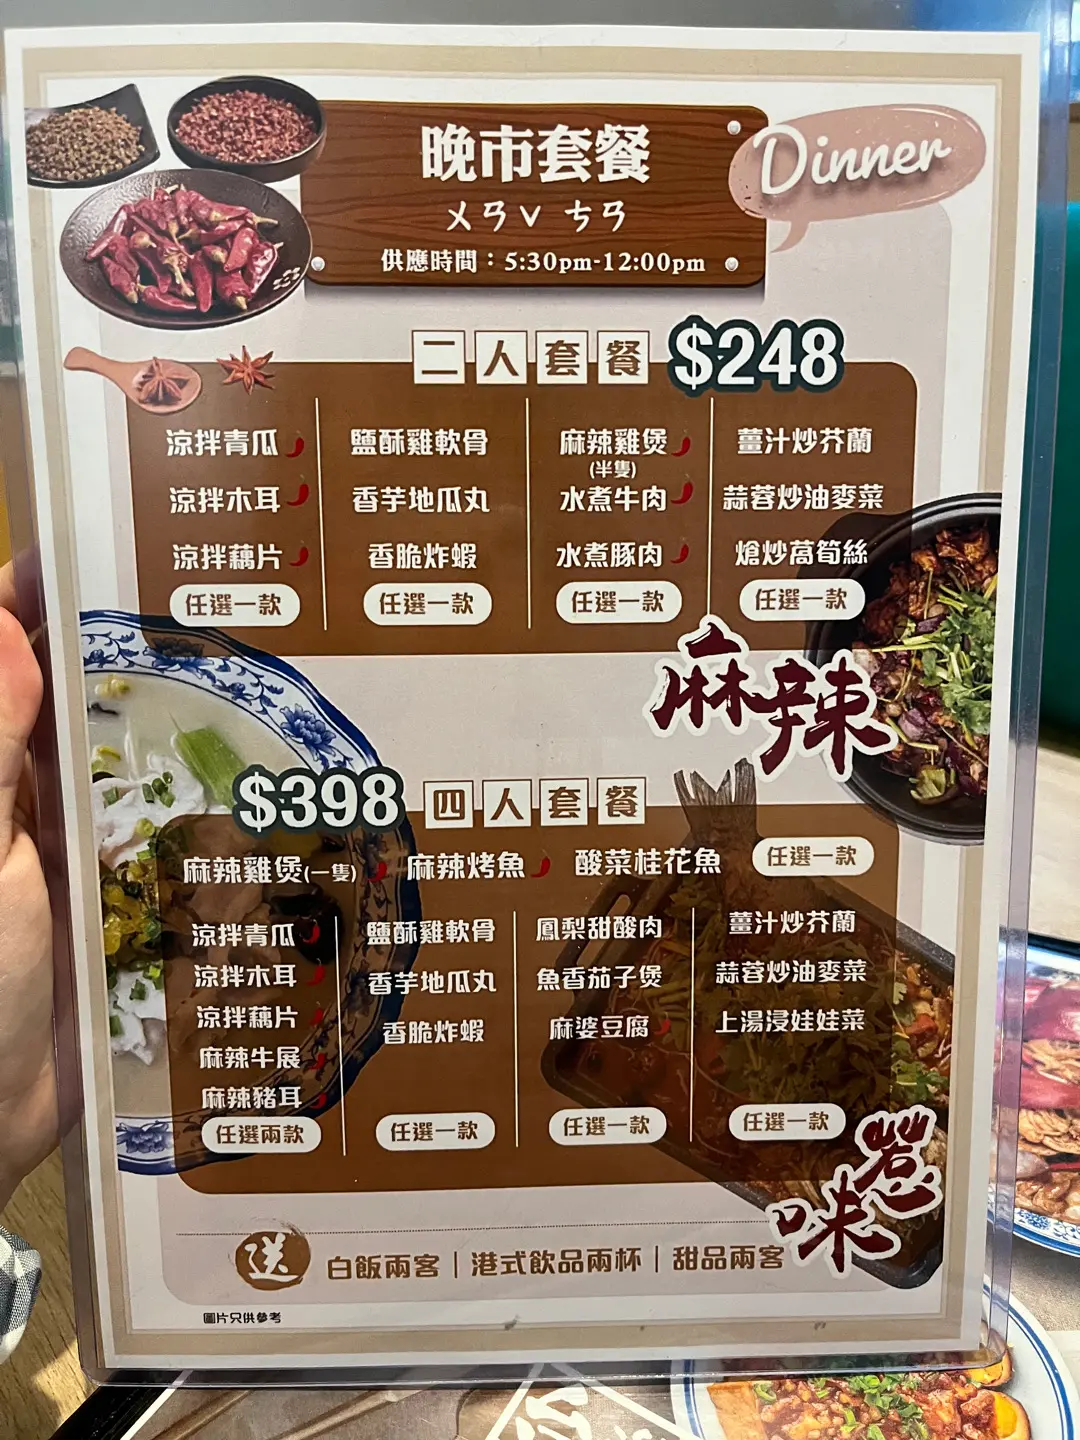 晚市套餐
ㄨㄢˇ ㄘㄢ
供應時間：5:30pm-12:00pm
Dinner
二人套餐 $248
涼拌青瓜
涼拌木耳
涼拌藕片
任選一款
鹽酥雞軟骨
香芋地瓜丸
香脆炸蝦
任選一款
麻辣雞煲
(半隻)
水煮牛肉
水煮豚肉
任選一款
薑汁炒芥蘭
蒜蓉炒油麥菜
熗炒萵筍絲
任選一款
麻辣
$398 四人套餐
麻辣雞煲(一隻) 麻辣烤魚 酸菜桂花魚 任選一款
涼拌青瓜
涼拌木耳
涼拌藕片
麻辣牛展
麻辣豬耳
任選兩款
鹽酥雞軟骨
香芋地瓜丸
香脆炸蝦
任選一款
鳳梨甜酸肉
魚香茄子煲
麻婆豆腐
任選一款
薑汁炒芥蘭
蒜蓉炒油麥菜
上湯浸娃娃菜
任選一款
惹味
送 白飯兩客 | 港式飲品兩杯 | 甜品兩客
圖片只供參考